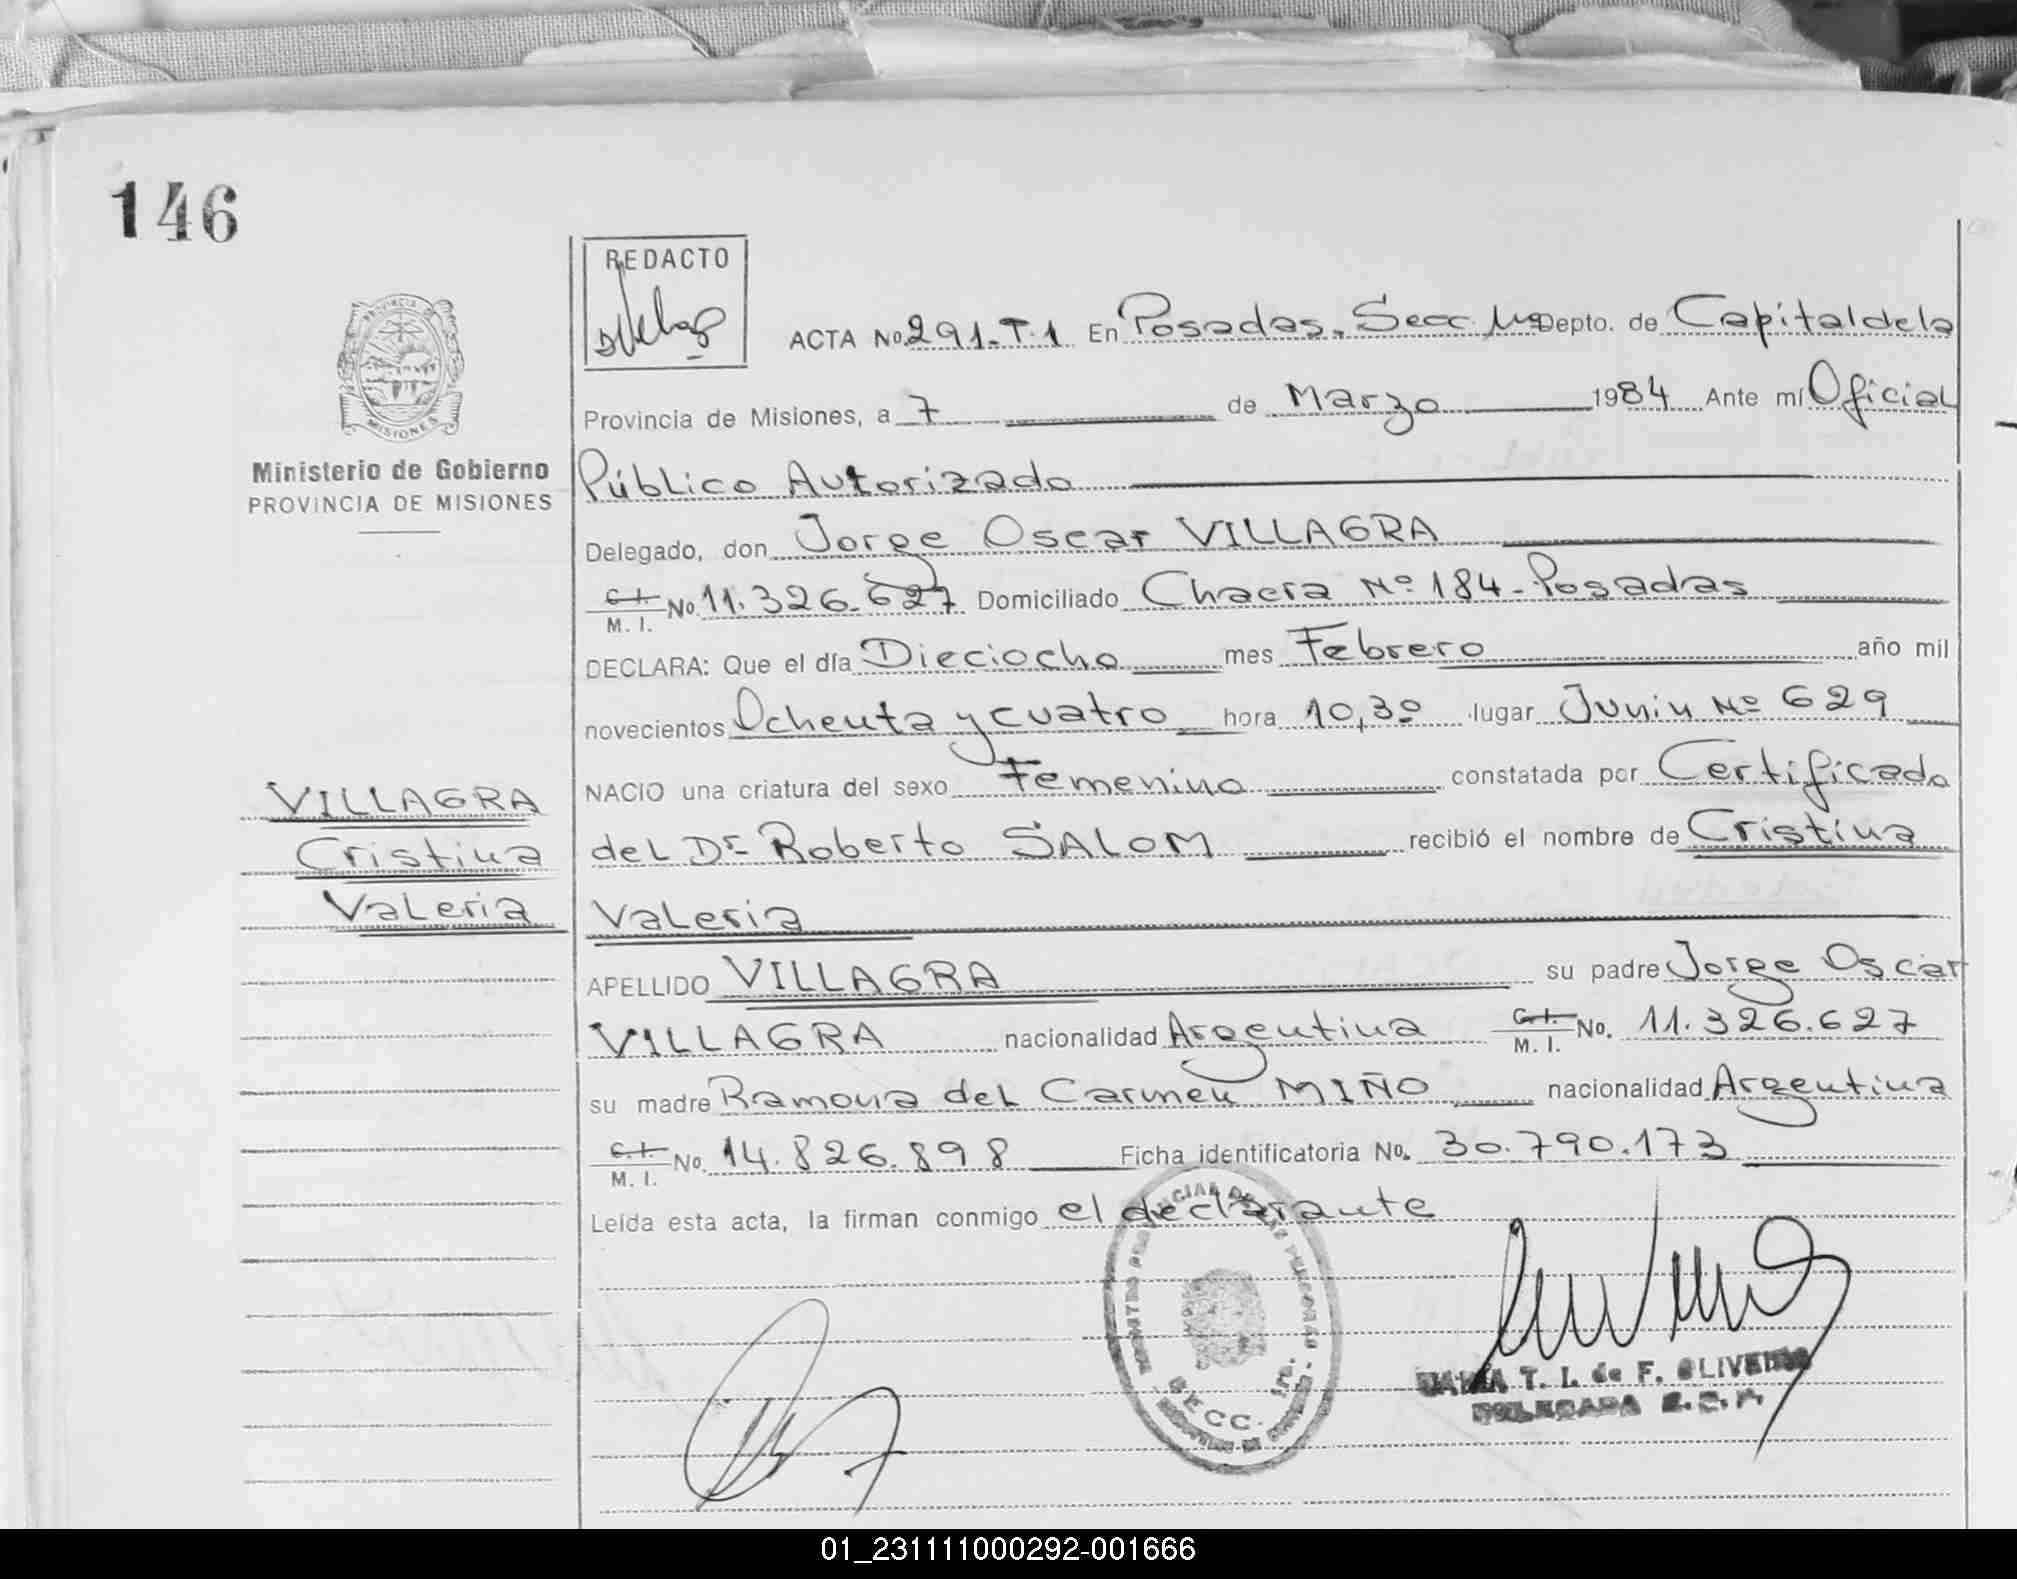 146
REDACTO
ACTA No. 291-T.1 En Posadas, Secc. Depto. de Capital de la
PROVINCIA
MISIONES
Provincia de Misiones, a 7 de Marzo 1984 Ante mí Oficial
Ministerio de Gobierno
PROVINCIA DE MISIONES
Público Autorizado
Delegado, don Jorge Oscar VILLAGRA
C.I. M. I. No. 11.326.627 Domiciliado Chacra Nº 184-Posadas
DECLARA: Que el día Dieciocho mes Febrero año mil
novecientos Ochenta y cuatro hora 10,30 lugar Junín Nº 629
NACIO una criatura del sexo Femenino constatada por Certificado
del Dr Roberto SALOM recibió el nombre de Cristina
Valeria
VILLAGRA
Cristina
Valeria
APELLIDO VILLAGRA su padre Jorge Oscar
VILLAGRA nacionalidad Argentina C.I. M. I. No. 11.326.627
su madre Ramona del Carmen MIÑO nacionalidad Argentina
C.I. M. I. No. 14.826.898 Ficha identificatoria No. 30.790.173
Leída esta acta, la firman conmigo el declarante
REGISTRO PROVINCIAL DE LAS PERSONAS
SECC.
T. I. de F. OLIVEIRA
DELEGADA
01_231111000292-001666